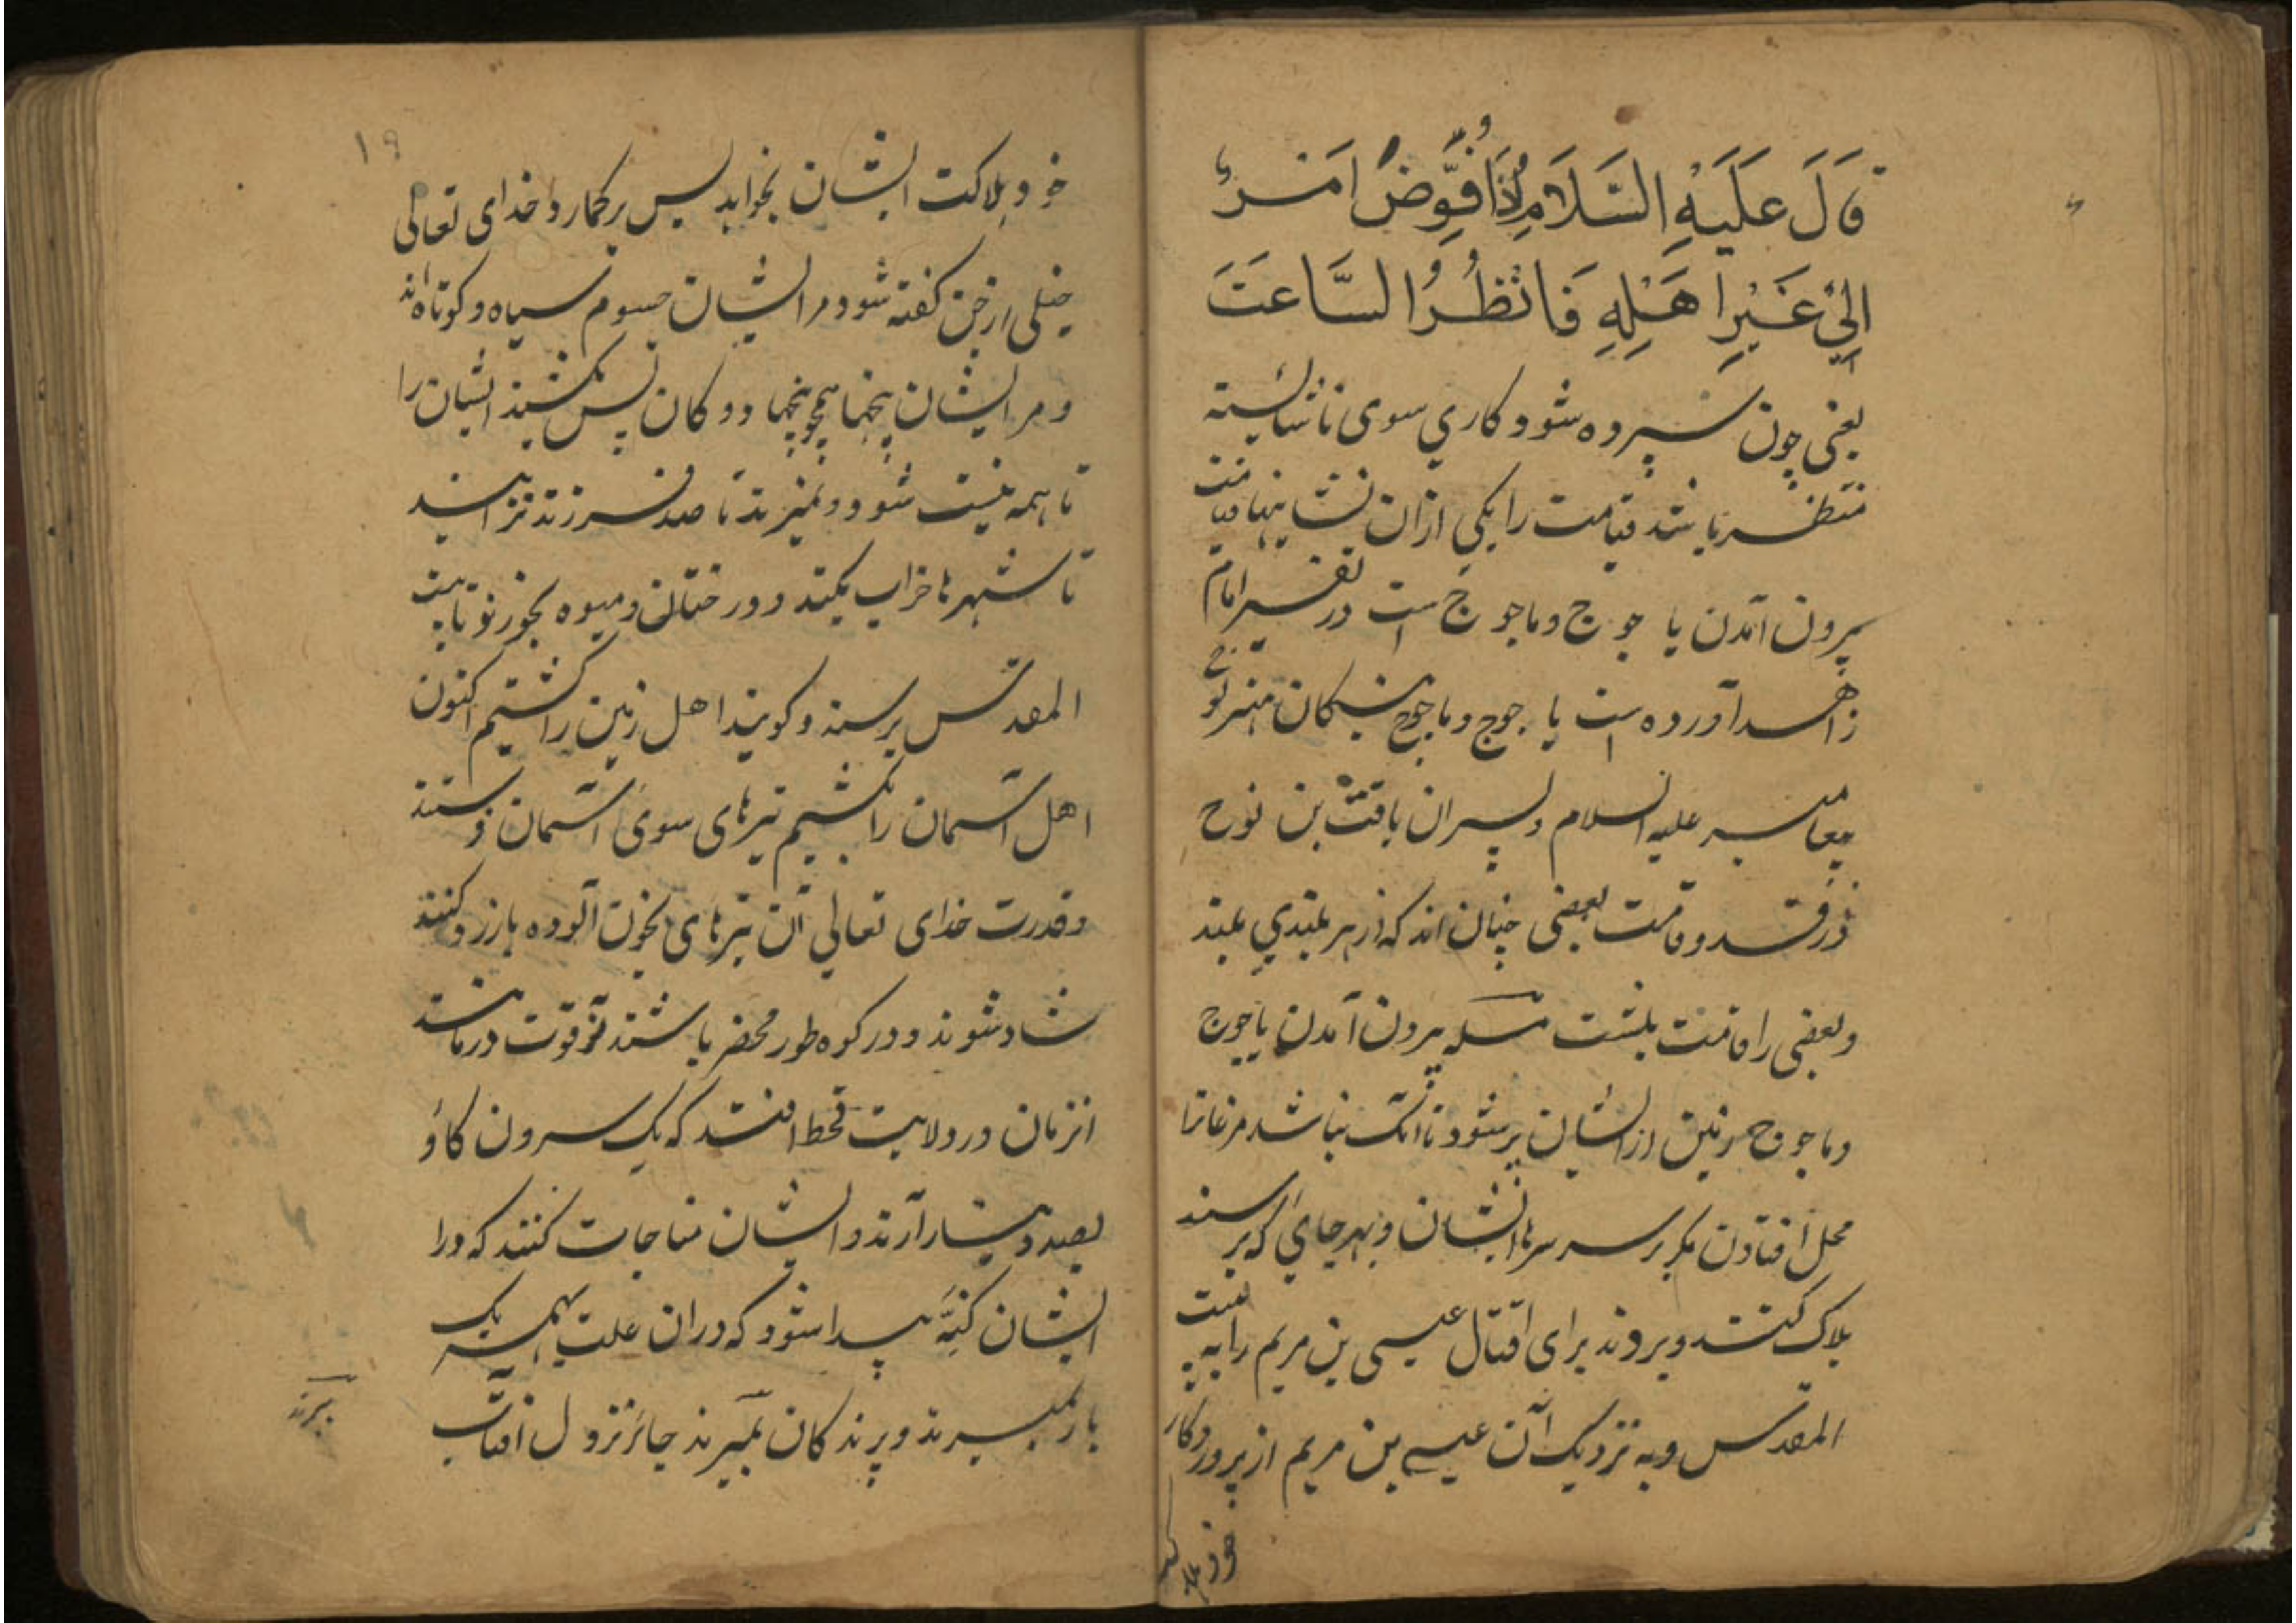 قَالَ عَلَيْهِ السَّلَامِ اِذَا فُوِّضَ اَمْرٌ
اِلیٰ غَیْرِ اَهْلِهِ فَانْظُرُ السَّاعَتَ
یعنی چون سپرده شود کاری سوی ناشایسته
منتظر باشد قیامت را یکی ازان نشانیها قیامت
بیرون آمدن یاجوج و ماجوج است در تفسیر امام
زاهد آورده است یاجوج و ماجوج مهتر نوح
علیه السلام و پسران یافث بن نوح
در قد و قامت بعضی چنان اند که از هر بلندی بلند
و بعضی را قامت بلشت مسله بیرون آمدن یاجوج
و ماجوج زمین از ایشان پر شود تا آنک نباشد مرغانرا
محل افتادن مگر بر سر سرها ایشان و بهر جای که برسند
هلاک کنند و بروند برای اقتال عیسی بن مریم را به بیت
المقدس و به نزدیک آن عیسی بن مریم از پروردکار
خود هلا
۱۹
خود هلاکت ایشان بخواهد پس برکمارد خدای تعالی
خیلی از جن کفته شود مر ایشان جسوم سیاه و کوتاه اند
و مر ایشان پنجها همچو پنجها پس بکشند ایشان را
تا همه نیست شود و نمیرند تا صد فرزند نزایند
تا شهرها خراب بکنند و درختان و میوه بخورند تا بیت
المقدس برسند و کویند اهل زمین را کشتیم اکنون
اهل آسمان را بکشیم تیرهای سوی آسمان فرستند
و قدرت خدای تعالی آن تیرهای بخون آلوده باز رد کنند
شاد شوند و در کوه طور محضر باشند از قوت درمانند
انزمان در ولایت قحط افتد که یک سرون کاو
بصد دینار آرند و ایشان مناجات کنند که درا
ایشان کنه پیدا شود که دران علت همه یک
بار بمیرند و پرندکان بمیرند جائز نزول افتاب